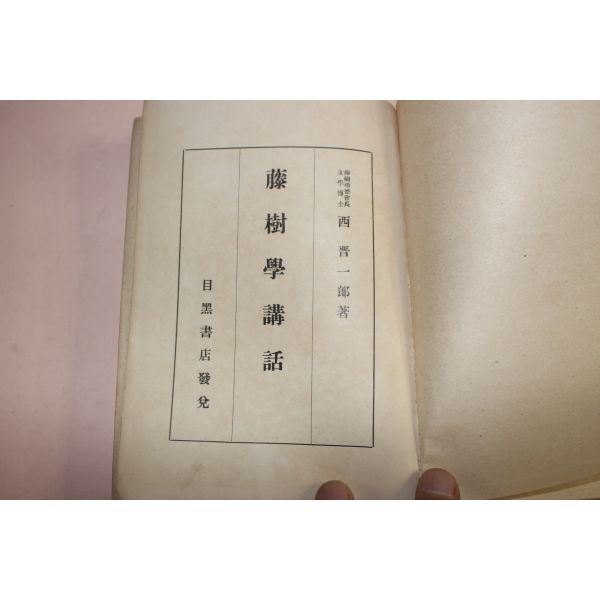 藤樹頌德會長
文學博士
西晋一郎著
藤樹學講話
目黑書店發兌